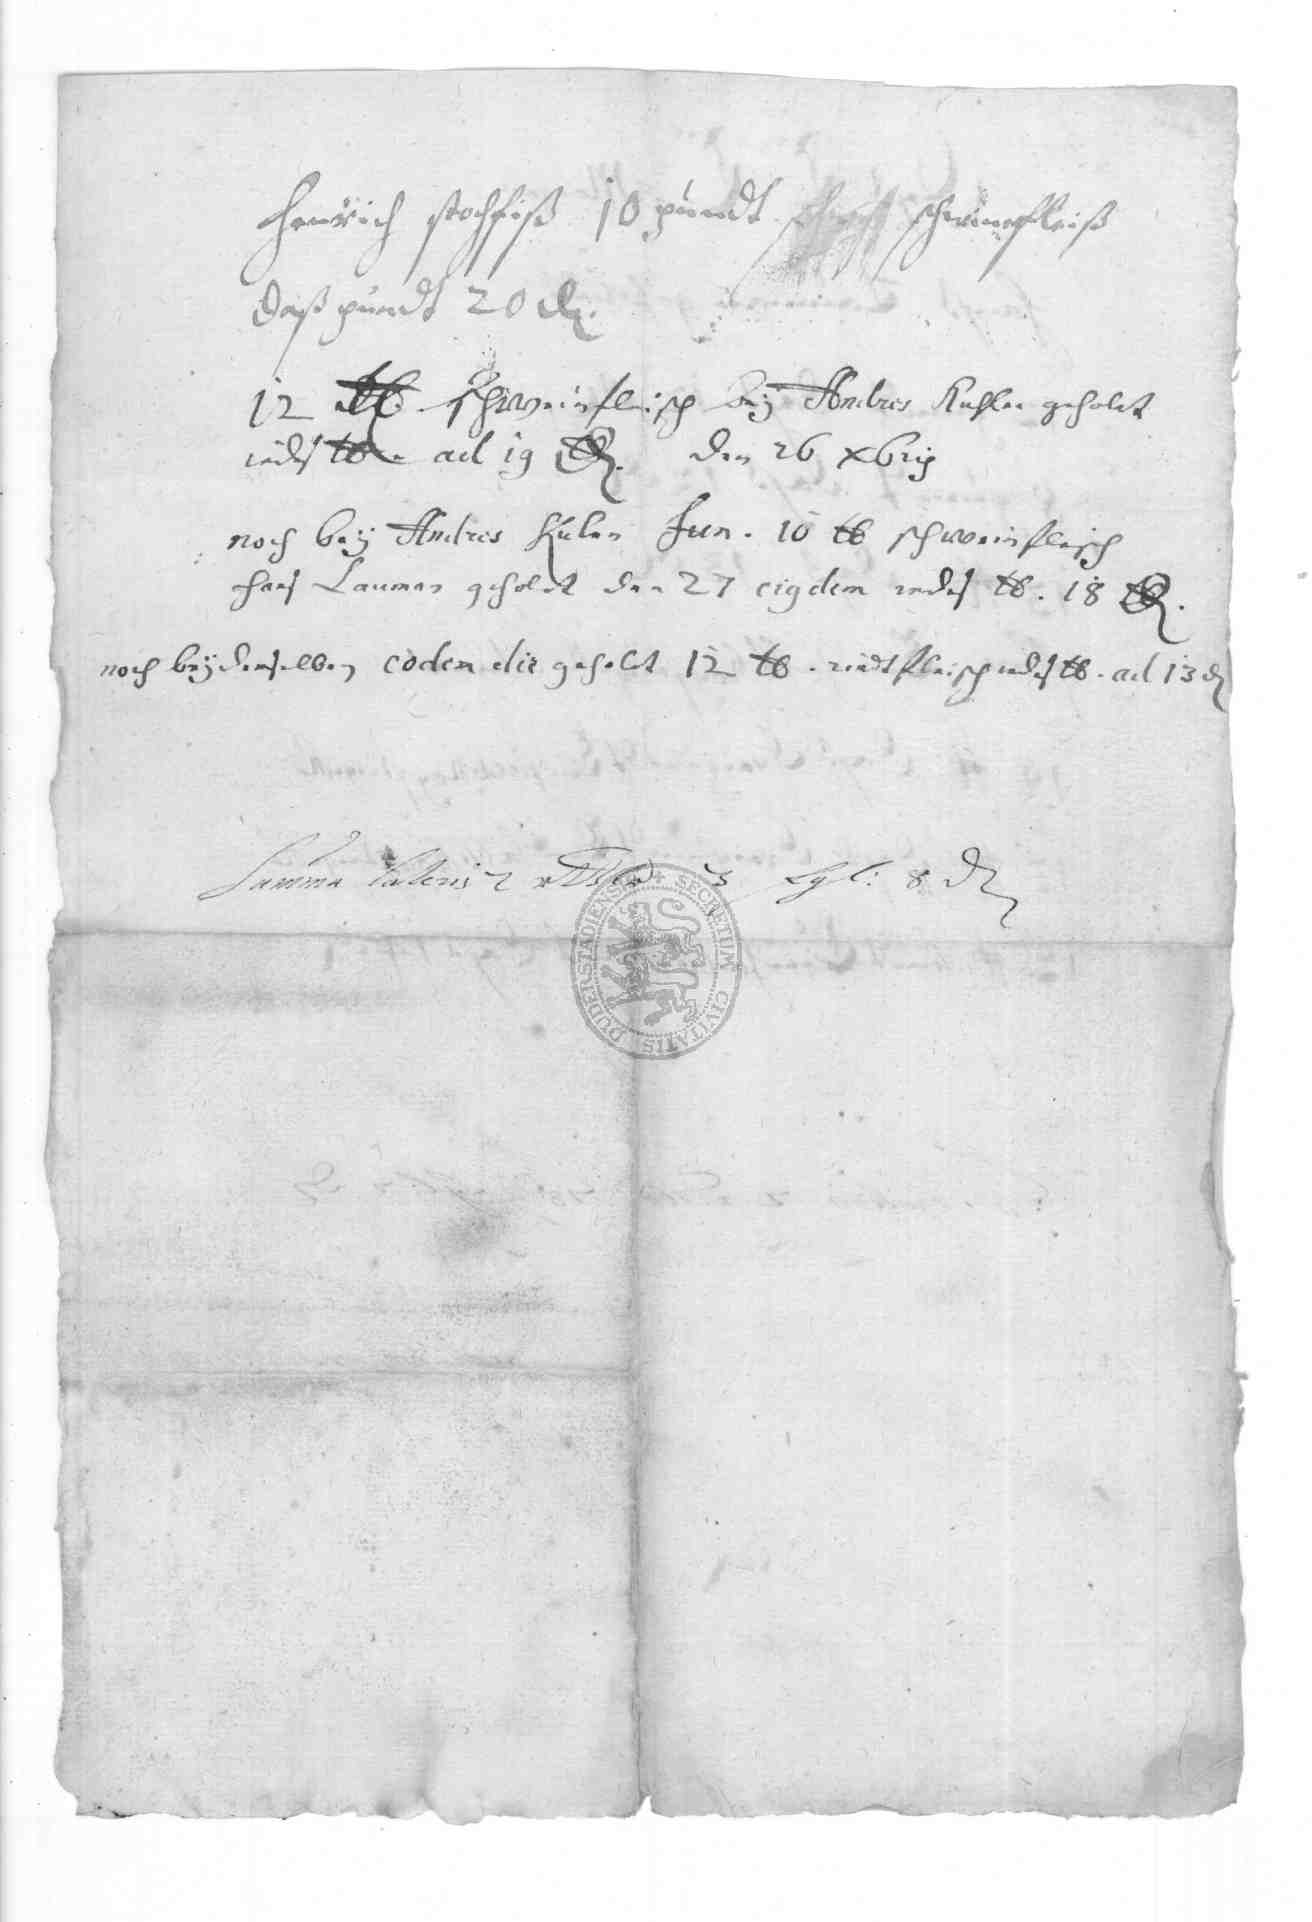 Henrich stochfiß 10 pundt schweinefleiß
daß pundt 20 ₰.
12 ℔. schweinfleisch beÿ Andres Kuhlen geholet
iedes ℔. ad 19 ₰. den 26 xbris
noch beÿ Andres Kulen Jun. 10 ℔ schweinfleisch
Hans Lauman geholet den 27 eiqdem iedes ℔. 18 ₰.
noch beÿ demselben eodem die geholet 12 ℔. rindtfleisch iedes ℔. ad 13 ₰
Summa lateris 2 3 gl: 8 ₰
SECRETUM CIVITATIS DUDERSTADIENSIS